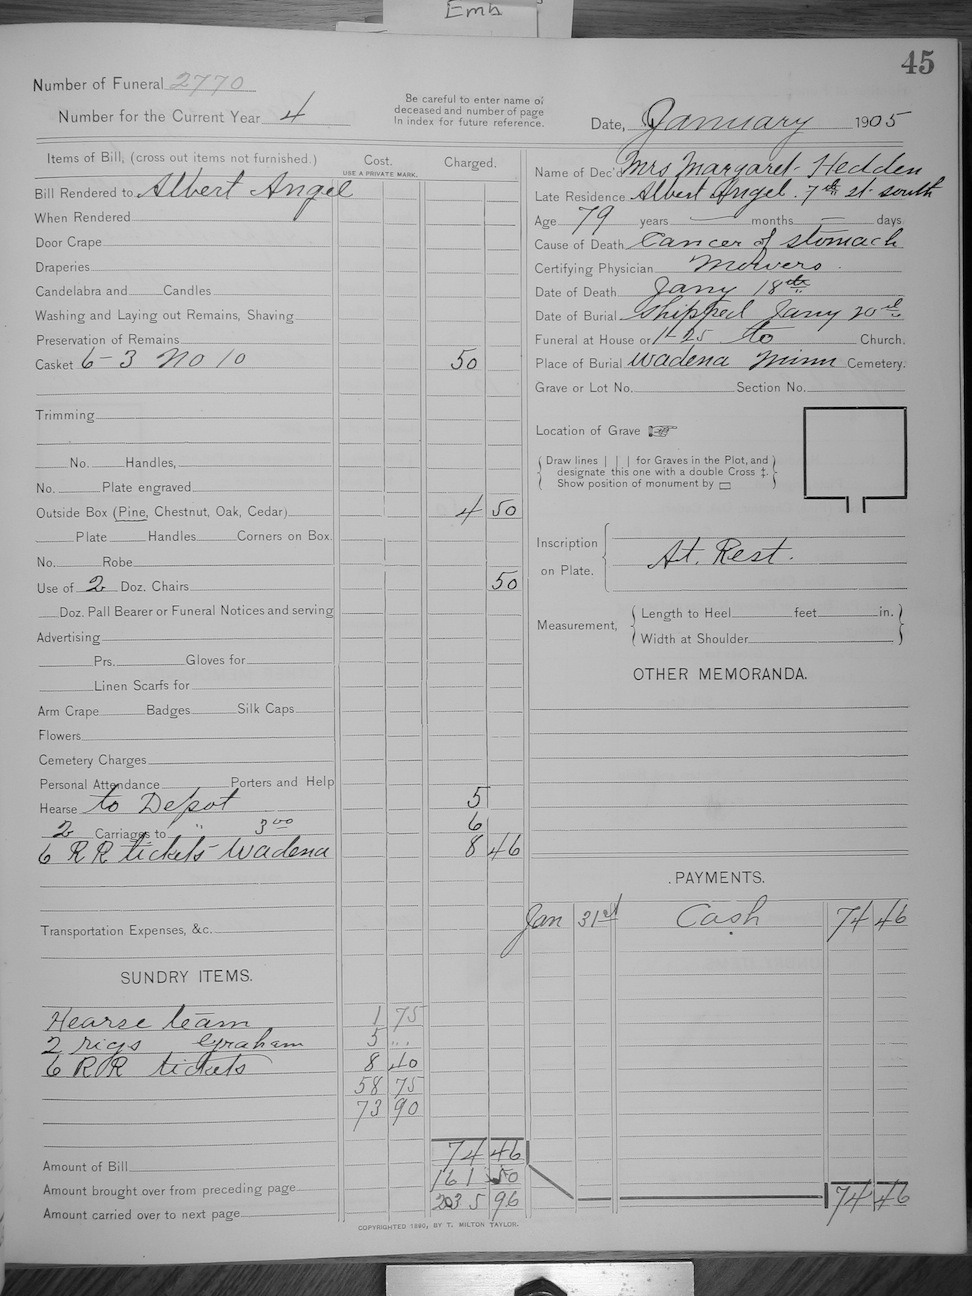 Emb
45
Number of Funeral 2770
Number for the Current Year 4
Be careful to enter name of
deceased and number of page
In index for future reference.
Date, January 1905
Items of Bill, (cross out items not furnished.)
Cost.
USE A PRIVATE MARK.
Charged.
Bill Rendered to Albert Angel
When Rendered
Door Crape
Draperies
Candelabra and Candles
Washing and Laying out Remains, Shaving
Preservation of Remains
Casket 6-3 No 10 50
Trimming
No. Handles,
No. Plate engraved
Outside Box (Pine, Chestnut, Oak, Cedar) 4 50
Plate Handles Corners on Box.
No. Robe
Use of 2 Doz. Chairs 50
Doz. Pall Bearer or Funeral Notices and serving
Advertising
Prs. Gloves for
Linen Scarfs for
Arm Crape Badges Silk Caps
Flowers
Cemetery Charges
Personal Attendance Porters and Help
Hearse to Depot 5
2 Carriages to " 3 00 6
6 RR tickets Wadena 8 46
Transportation Expenses, &c.
SUNDRY ITEMS.
Hearse team 1 75
2 rigs Graham 5 ..
6 RR tickets 8 40
58 75
73 90
74 46
Amount of Bill
161 50
Amount brought over from preceding page
235 96
Amount carried over to next page
COPYRIGHTED 1890, BY T. MILTON TAYLOR.
Name of Dec'd Mrs Margaret Hedden
Late Residence Albert Angel. 7th st. south
Age 79 years — months — days
Cause of Death Cancer of stomach
Certifying Physician
Date of Death Jany 18th
Date of Burial shipped Jany 20th
Funeral at House or 1-25 to Church.
Place of Burial Wadena Minn Cemetery.
Grave or Lot No. Section No.
Location of Grave
Draw lines | | | for Graves in the Plot, and
designate this one with a double Cross ‡.
Show position of monument by ▭
Inscription
on Plate.
At. Rest.
Measurement,
Length to Heel feet in.
Width at Shoulder
OTHER MEMORANDA.
PAYMENTS.
Jan 31st Cash 74 46
74 46